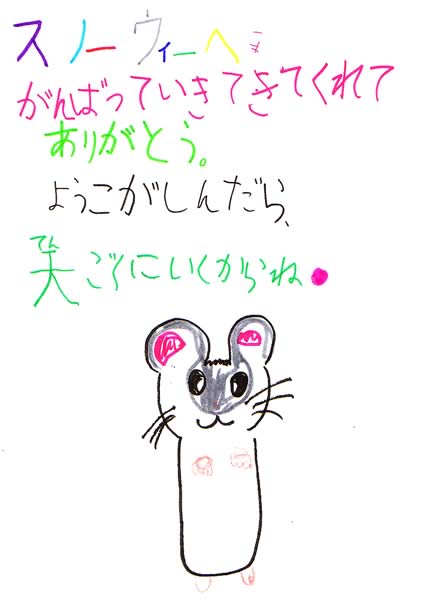 スノーウィーへ
がんばっていきてきてくれて
ありがとう。
ようこがしんだら、
てん
天ごくにいくからね